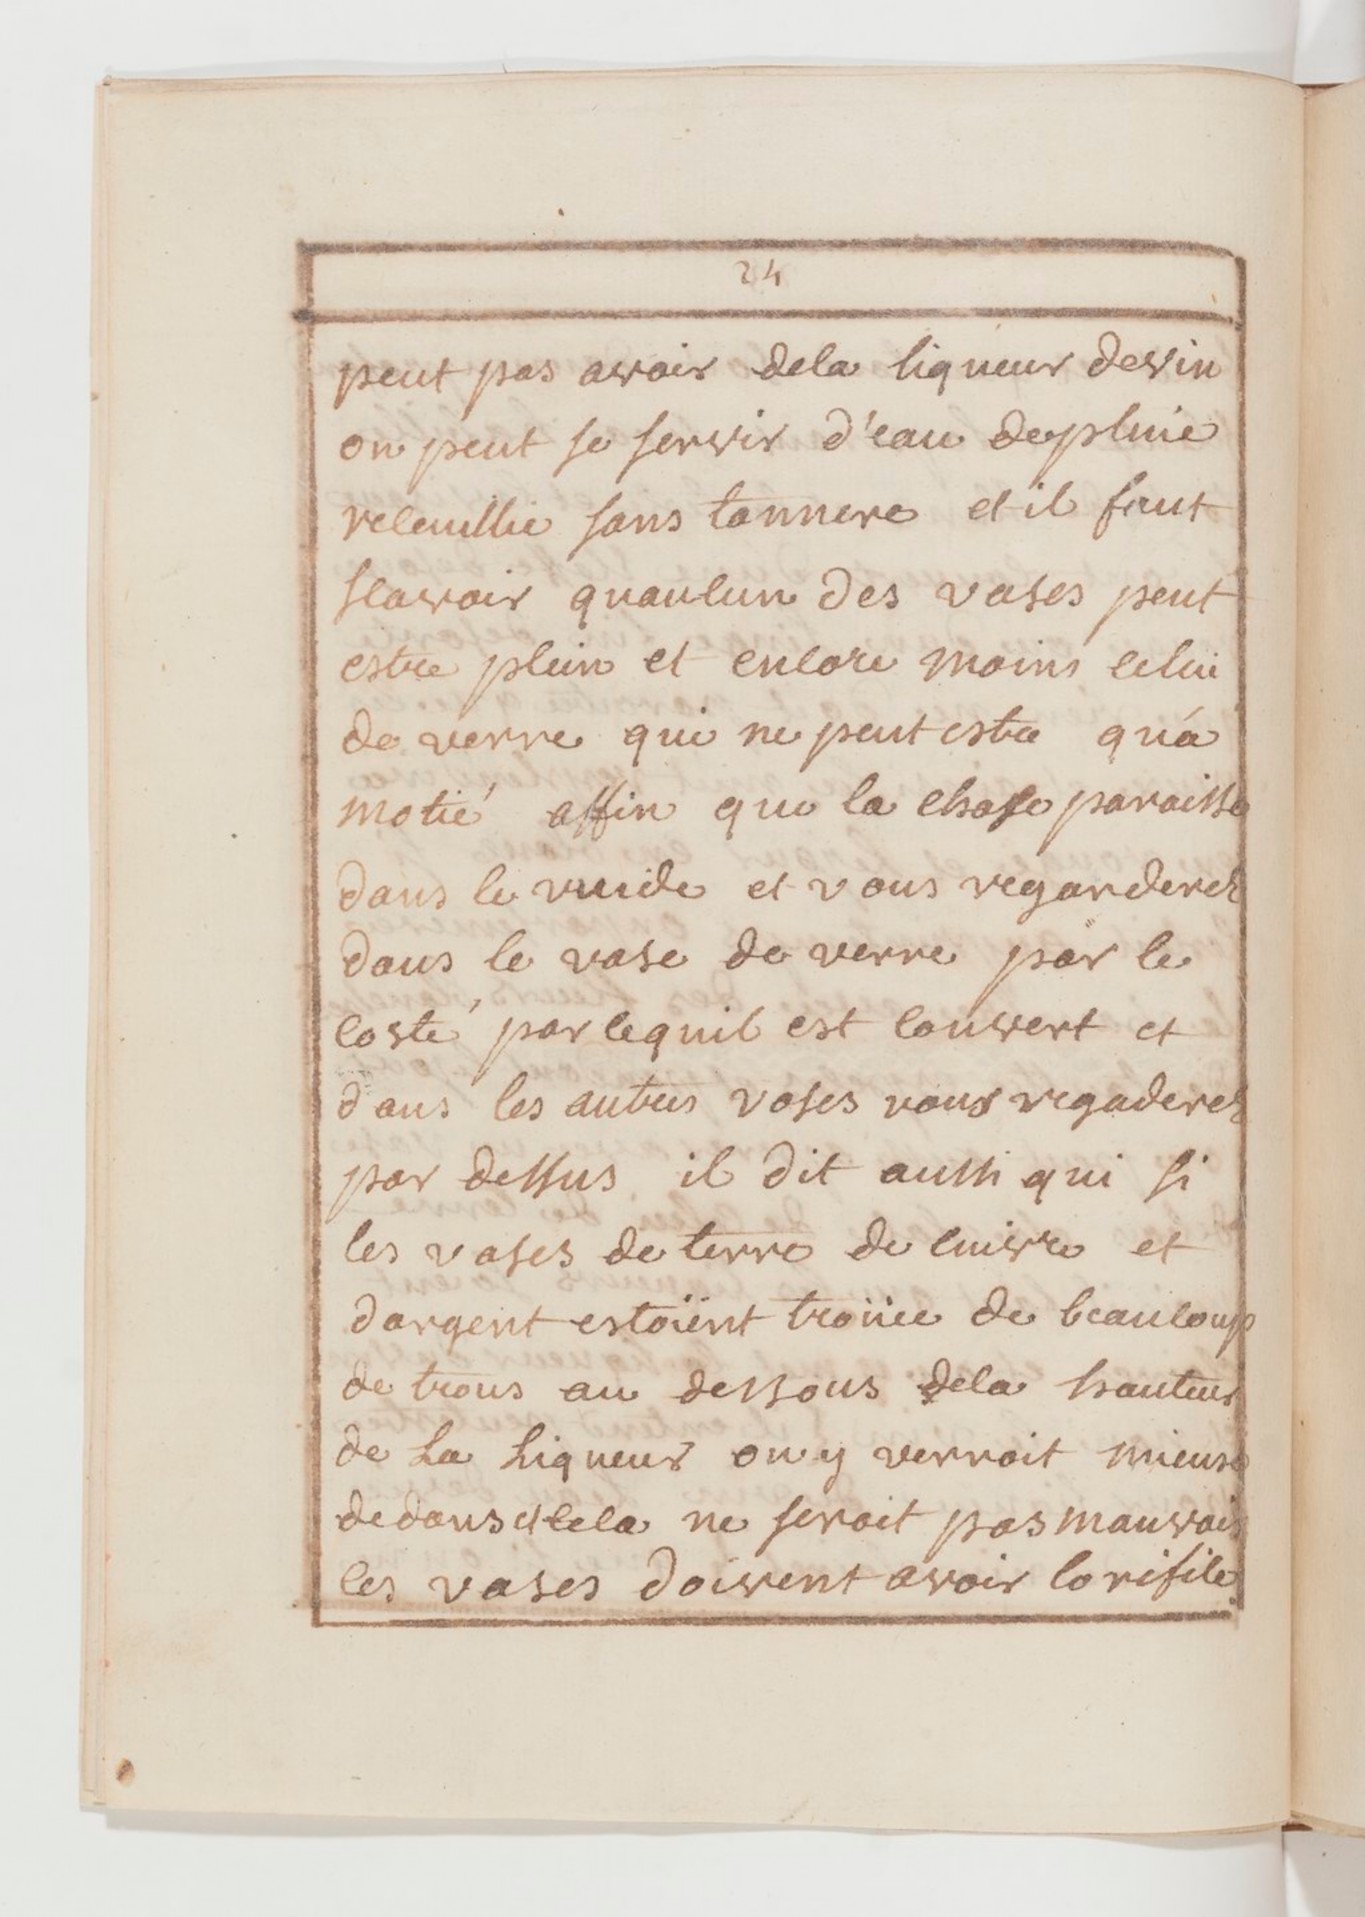 24
peut pas avoir dela liqueur devin
on peut se servir d'eau depluie
receuillie sans tonnere et il faut
scavoir quaucun des vases peut
estre plein et encore moins celui
de verre qui ne peut estre qu'a
motié affin que la chose paroisse
dans le vuide et vous regarderes
dans le vase de verre par le
costé par lequil est couvert et
dans les autres vases vous regaderes
par dessus il dit aussi qui si
les vases de terre de cuivre et
dargent estoïent troüée de beaucoup
de trous au dessous dela hauteur
de La Liqueur on y verroit mieux
dedans et cela ne seroit pas mauvais
les vases doivent avoir lorifice